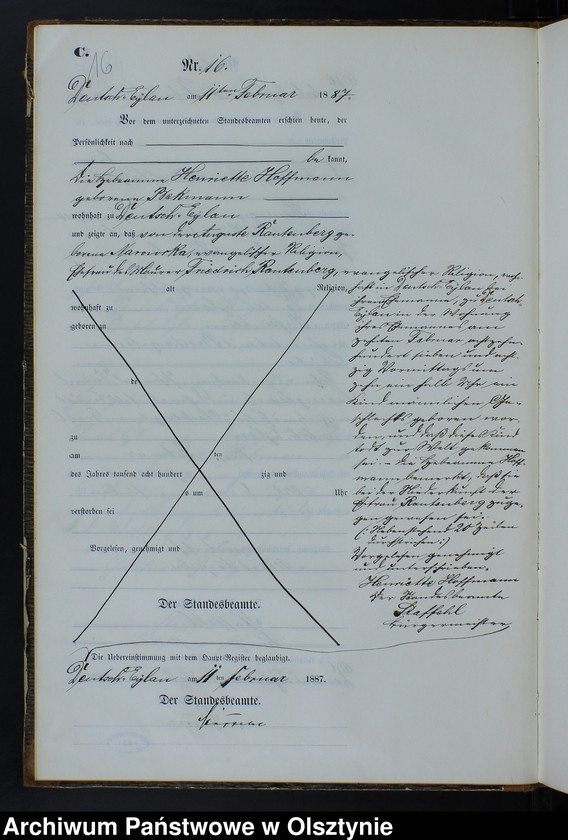 C.
16
Nr. 16.
Deutsch-Eylau am 11ten Februar 1887.
Vor dem unterzeichneten Standesbeamten erschien heute, der
Persönlichkeit nach
be kannt,
die Hebeamme Henriette Hoffmann
geborene
wohnhaft zu Deutsch-Eylau
und zeigte an, daß von der Auguste Rautenberg ge-
borene evangelischer Religion,
Ehefrau des Maurer Friedrich Rautenberg, evangelischer Religion, wohn-
alt Religion,
wohnhaft zu
geboren zu
de
zu
am ten
des Jahres tausend acht hundert zig und
s um Uhr
verstorben sei
Vorgelesen, genehmigt und
Der Standesbeamte.
haft in Deutsch Eylau bei
ihrem Ehemanne, zu Deutsch-
Eylau in der Wohnung
ihres Ehemannes am
zehnten Februar achtzehn-
hundert sieben und acht-
zig Vormittags um
zehn ein halb Uhr ein
Kind männlichen Ge-
schlechts geboren wor-
den, und daß dieses Kind
todt zur Welt gekommen
sei. – die Hebeamme Hoff-
mann bemerkt, daß sie
bei der Niederkunft der
Ehefrau Rautenberg zuge-
gen gewesen sei.
(: Nebenstehend 20 Zeilen
durchstrichen :)
Vorgelesen genehmigt
und unterschrieben.
Henriette Hoffmann
Der Standesbeamte
Staffehl
Bürgermeister
Die Uebereinstimmung mit dem Haupt-Register beglaubigt.
Deutsch-Eylau am 11ten Februar 1887.
Der Standesbeamte.
Archiwum Państwowe w Olsztynie